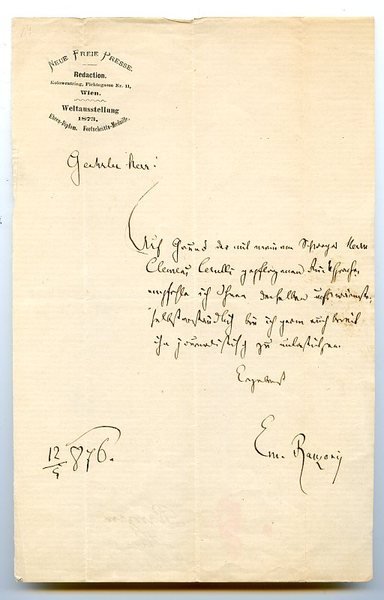 NEUE FREIE PRESSE.
Redaction.
Kolowratring, Fichtegasse Nr. 11,
Wien.
Weltausstellung
1873.
Ehren-Diplom. Fortschritts-Medaille.
Geehrter Herr!
Auf Grund der mit meinem Schwager Herrn
Clemens gepflogenen Rücksprache,
empfehle ich Ihnen denselben
selbstverständlich bin ich gern auch bereit
ihn journalistisch zu unterstützen.
Ergebenst
Em. Ranzoni
12/4 876.